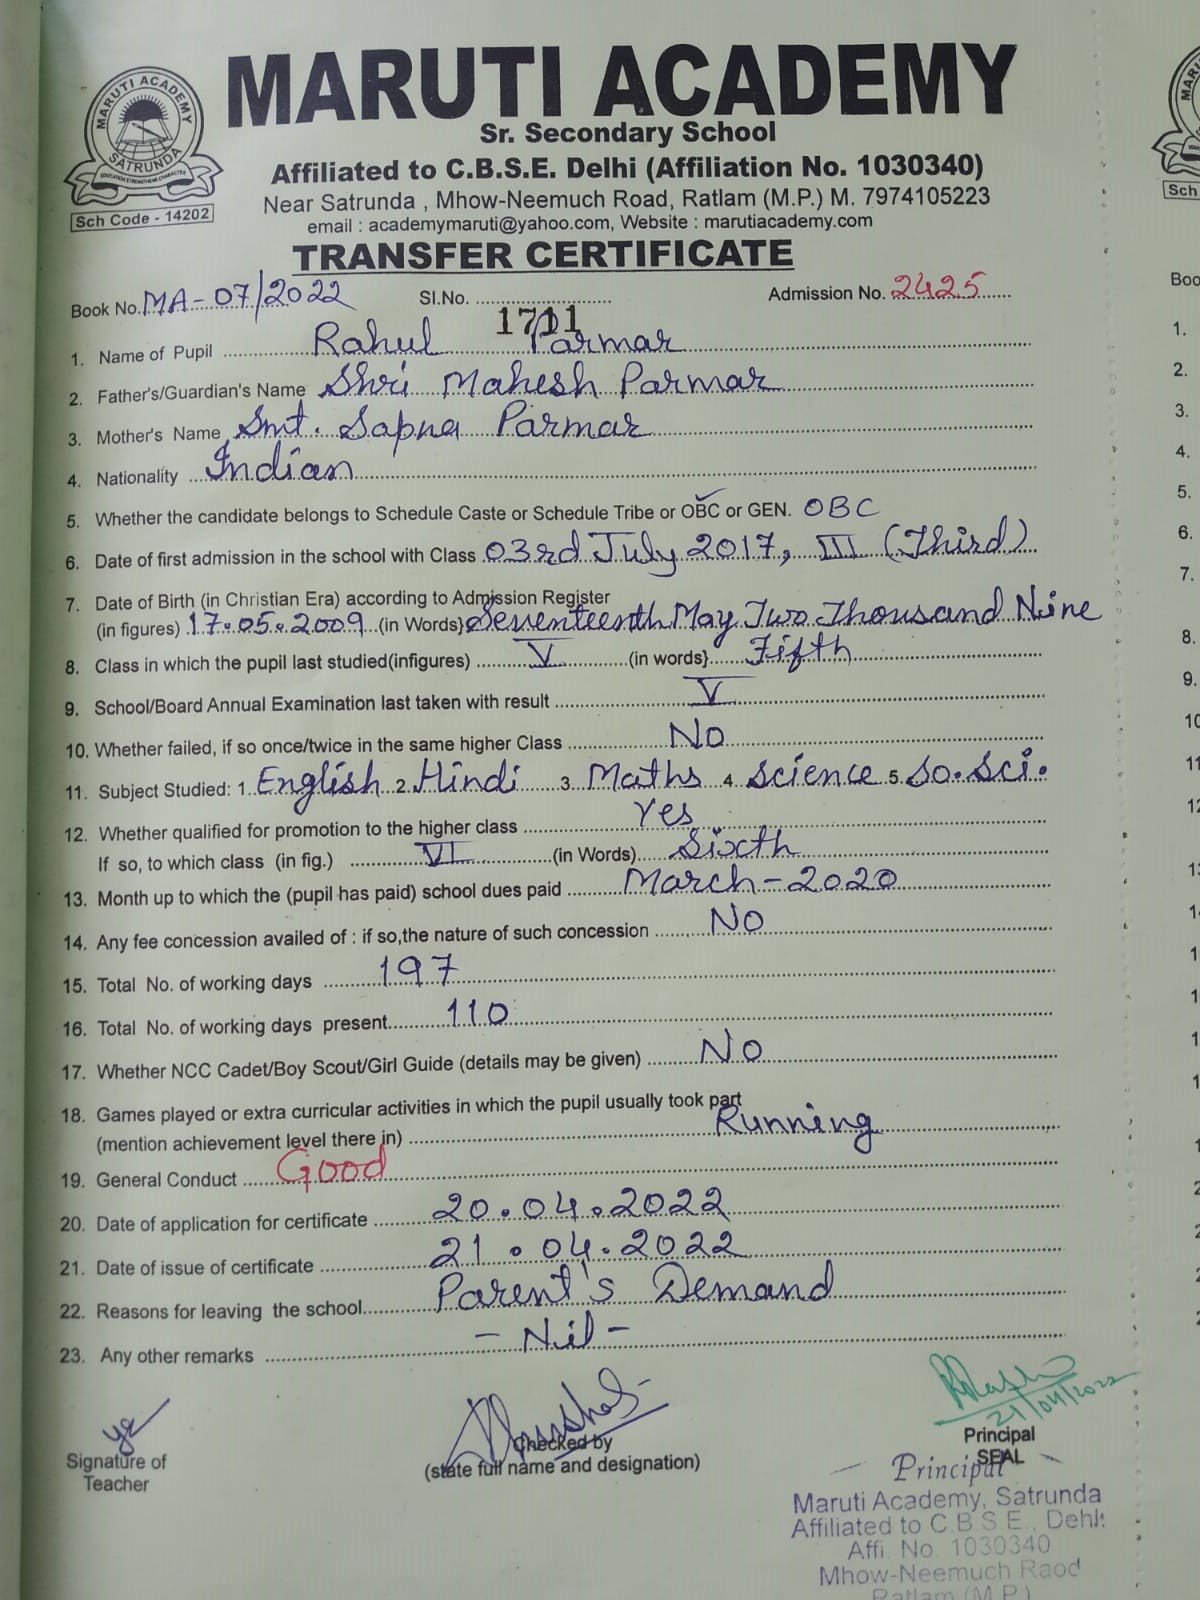 MARUTI ACADEMY
Sr. Secondary School
Affiliated to C.B.S.E. Delhi (Affiliation No. 1030340)
Near Satrunda , Mhow-Neemuch Road, Ratlam (M.P.) M. 7974105223
email : academymaruti@yahoo.com, Website : marutiacademy.com
MARUTI ACADEMY
SATRUNDA
Sch Code - 14202
TRANSFER CERTIFICATE
Book No. MA-07/2022 Sl.No. 1711 Admission No. 2425
1. Name of Pupil Rahul Parmar
2. Father's/Guardian's Name Shri Mahesh Parmar
3. Mother's Name Smt. Sapna Parmar
4. Nationality Indian
5. Whether the candidate belongs to Schedule Caste or Schedule Tribe or OBC or GEN. OBC
6. Date of first admission in the school with Class 03rd July 2017, III (Third)
7. Date of Birth (in Christian Era) according to Admission Register
(in figures) 17.05.2009 (in Words} Seventeenth May Two Thousand Nine
8. Class in which the pupil last studied(infigures) V (in words} Fifth
9. School/Board Annual Examination last taken with result V
10. Whether failed, if so once/twice in the same higher Class No
11. Subject Studied: 1. English 2. Hindi 3. Maths 4. Science 5. So. Sci.
12. Whether qualified for promotion to the higher class Yes
If so, to which class (in fig.) VI (in Words) Sixth
13. Month up to which the (pupil has paid) school dues paid March-2020
14. Any fee concession availed of : if so,the nature of such concession No
15. Total No. of working days 197
16. Total No. of working days present 110
17. Whether NCC Cadet/Boy Scout/Girl Guide (details may be given) No
18. Games played or extra curricular activities in which the pupil usually took part
(mention achievement level there in) Running
19. General Conduct Good
20. Date of application for certificate 20.04.2022
21. Date of issue of certificate 21.04.2022
22. Reasons for leaving the school Parent's Demand
23. Any other remarks - Nil -
21/04/2022
Signature of
Teacher
Checked by
(state full name and designation)
Principal
SEAL
Principal
Maruti Academy, Satrunda
Affiliated to C.B.S.E., Dehli
Affi. No. 1030340
Mhow-Neemuch Raod
Ratlam (M.P.)